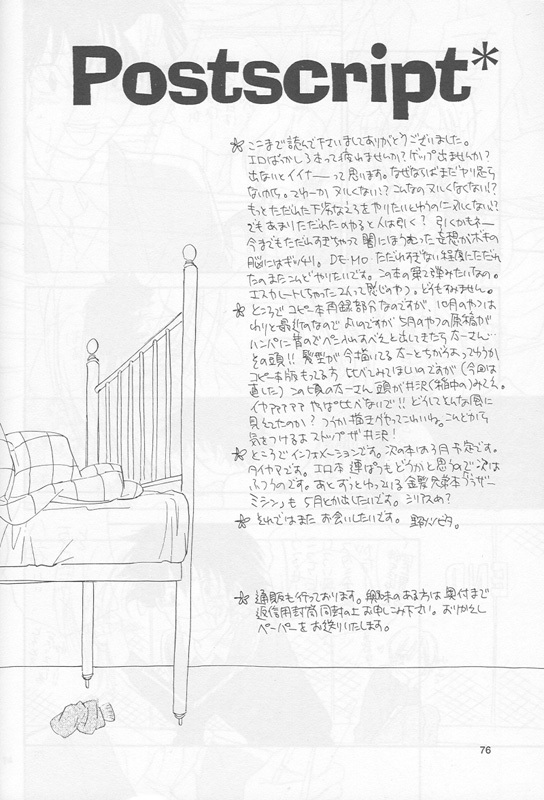 Postscript*
☆ ここまで読んで下さいましてありがとうございました。
エロばっかし3本って疲れませんか?ゲップ出ませんか?
出ないとイイナーーって思います。なぜならばまだヤり足ら
ないから。てゆーかヌルくない!?こんなのヌルくなくない!?
もっとただれた下劣なえろをやりたいとゆうのにヌルくない?
でもあまりただれたのやると人は引く?引くかもネー
今までもただれすぎちゃって闇にほうむった妄想がボキの
脳にはギッチリ。DE・MO・ただれすぎない程度にただれ
たのまたこんどやりたいです。この本の栗で弾みたいなの。
エスカレートしちゃった2人って感じのやつ。どうもすみません。
☆ ところでコピー本再録部分なのですが、10月のやつは
わりと最近のなのでよいのですが5月のやつの原稿が
ハンパに昔のでペーハムすべえと出してきたら太一さん…
その頭!!髪型が今描いてる太一とちがうよってゆうか
コピー本版もってる方比べてみてほしいのですが(今回は
直した)この頃の太一さん頭が井沢(稲中の)みてえ。
イヤアアアアアやっぱ比べないで!!どうしてそんな風に
見えてたのか?つうか描きやってこわいね。こんどから
気をつけるよストップザ井沢!
☆ ところでインフォメーションです。次の本は3月予定です。
タイヤマです。エロ本連ぱつもどうかと思うので次は
ふつうのです。あとずっとゆっている金髪兄弟本「ブラザー
ミシン」も5月とか出したいです。シリアスめ?
☆ それではまたお会いしたいです。
☆ 通販も行っております。興味のある方は奥付まで
返信用封筒同封の上お申しこみ下さい。おりかえし
ペーパーをお送りいたします。
76